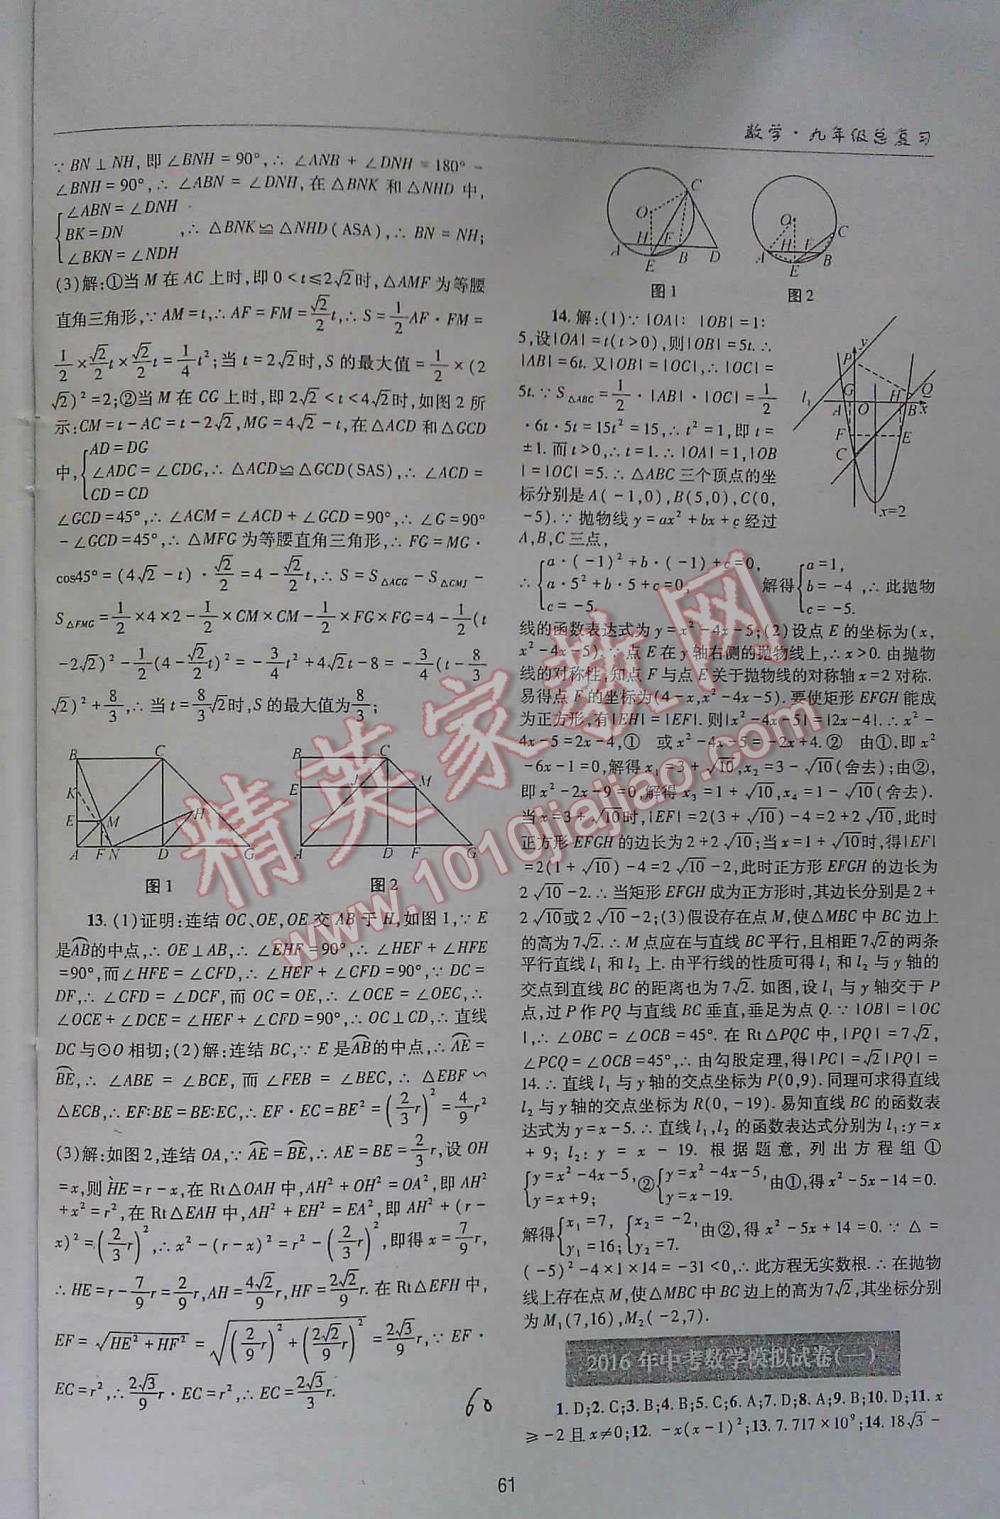 数学·九年级总复习
∵BN⊥NH,即∠BNH=90°,∴∠ANB+∠DNH=180°-
∠BNH=90°,∴∠ABN=∠DNH,在△BNK和△NHD中,
{∠ABN=∠DNH
BK=DN
∠BKN=∠NDH ,∴△BNK≌△NHD(ASA),∴BN=NH;
(3)解:①当M在AC上时,即0<t≤2√2时,△AMF为等腰
直角三角形,∵AM=t,∴AF=FM=√2/2 t,∴S=1/2 AF·FM=
1/2×√2/2 t×√2/2 t=1/4 t²;当t=2√2时,S的最大值=1/4×(2
√2)²=2;②当M在CG上时,即2√2<t<4√2时,如图2所
示:CM=t-AC=t-2√2,MG=4√2-t,在△ACD和△GCD
中,{AD=DG
∠ADC=∠CDG,∴△ACD≌△GCD(SAS),∴∠ACD=
CD=CD
∠GCD=45°,∴∠ACM=∠ACD+∠GCD=90°,∴∠G=90°
-∠GCD=45°,∴△MFG为等腰直角三角形,∴FG=MG·
cos45°=(4√2-t)·√2/2=4-√2/2 t,∴S=S△ACG-S△CMJ-
S△FMG=1/2×4×2-1/2×CM×CM-1/2×FG×FG=4-1/2(t
-2√2)²-1/2(4-√2/2 t)²=-3/4 t²+4√2t-8=-3/4(t-8/3
√2)²+8/3,∴当t=8/3√2时,S的最大值为8/3;
B C K E M H A F N D G
图1
B C J E M A D F G
图2
13.(1)证明:连结OC、OE,OE交AB于H,如图1,∵E
是AB的中点,∴OE⊥AB,∴∠EHF=90°,∴∠HEF+∠HFE
=90°,而∠HFE=∠CFD,∴∠HEF+∠CFD=90°,∵DC=
DF,∴∠CFD=∠DCF,而OC=OE,∴∠OCE=∠OEC,∴
∠OCE+∠DCE=∠HEF+∠CFD=90°,∴OC⊥CD,∴直线
DC与⊙O相切;(2)解:连结BC,∵E是AB的中点,∴AE=
BE,∴∠ABE=∠BCE,而∠FEB=∠BEC,∴△EBF∽
△ECB,∴EF:BE=BE:EC,∴EF·EC=BE²=(2/3 r)²=4/9 r²
(3)解:如图2,连结OA,∵AE=BE,∴AE=BE=2/3 r,设OH
=x,则HE=r-x,在Rt△OAH中,AH²+OH²=OA²,即AH²
+x²=r²,在Rt△EAH中,AH²+EH²=EA²,即AH²+(r-
x)²=(2/3 r)²,∴x²-(r-x)²=r²-(2/3 r)²,即得x=7/9 r,
∴HE=r-7/9 r=2/9 r,AH=4√2/9 r,HF=2√2/9 r.在Rt△EFH中,
EF=√(HE²+HF²)=√((2/9 r)²+(2√2/9 r)²)=2√3/9 r,∵EF·
EC=r²,∴2√3/9 r·EC=r²,∴EC=2√3/3 r.
60
O C A H F E B D
图1
O C A H F B E
图2
14.解:(1)∵|OA|:|OB|=1:
5,设|OA|=t(t>0),则|OB|=5t.∴
|AB|=6t.又|OB|=|OC|,∴|OC|=
5t.∵S△ABC=1/2·|AB|·|OC|=1/2
·6t·5t=15t²=15,∴t²=1,即t=
±1.而t>0,∴t=1.∴|OA|=1,|OB
|=|OC|=5.∴△ABC三个顶点的坐
标分别是A(-1,0),B(5,0),C(0,
-5).∵抛物线y=ax²+bx+c经过
A,B,C三点,
y P G H Q l₁ A O B x F E C x=2
∴{a·(-1)²+b·(-1)+c=0
a·5²+b·5+c=0
c=-5. 解得{a=1,
b=-4
c=-5. ,∴此抛物
线的函数表达式为y=x²-4x-5;(2)设点E的坐标为(x,
x²-4x-5).∵点E在y轴右侧的抛物线上,∴x>0.由抛物
线的对称性,知点F与点E关于抛物线的对称轴x=2对称.
易得点F的坐标为(4-x,x²-4x-5).要使矩形EFGH能成
为正方形,有|EH|=|EF|.则|x²-4x-5|=|2x-4|.∴x²-
4x-5=2x-4,① 或x²-4x-5=-2x+4.② 由①,即x²
-6x-1=0,解得x₁=3+√10,x₂=3-√10(舍去);由②,
即x²-2x-9=0,解得x₃=1+√10,x₄=1-√10(舍去).
当x=3+√10时,|EF|=2(3+√10)-4=2+2√10,此时
正方形EFGH的边长为2+2√10;当x=1+√10时,得|EF|
=2(1+√10)-4=2√10-2,此时正方形EFGH的边长为
2√10-2.∴当矩形EFGH成为正方形时,其边长分别是2+
2√10或2√10-2;(3)假设存在点M,使△MBC中BC边上
的高为7√2.∴M点应在与直线BC平行,且相距7√2的两条
平行直线l₁和l₂上.由平行线的性质可得l₁和l₂与y轴的
交点到直线BC的距离也为7√2.如图,设l₁与y轴交于P
点,过P作PQ与直线BC垂直,垂足为点Q.∵|OB|=|OC
|,∴∠OBC=∠OCB=45°.在Rt△PQC中,|PQ|=7√2,
∠PCQ=∠OCB=45°,∴由勾股定理,得|PC|=√2|PQ|=
14.∴直线l₁与y轴的交点坐标为P(0,9).同理可求得直线
l₂与y轴的交点坐标为R(0,-19).易知直线BC的函数表
达式为y=x-5.∴直线l₁,l₂的函数表达式分别为l₁:y=x
+9;l₂:y=x-19.根据题意,列出方程组①
{y=x²-4x-5,
y=x+9; ②{y=x²-4x-5,
y=x-19. 由①,得x²-5x-14=0.
解得{x₁=7,
y₁=16; {x₂=-2,
y₂=7. 由②,得x²-5x+14=0.∵△=
(-5)²-4×1×14=-31<0,∴此方程无实数根.∴在抛物
线上存在点M,使△MBC中BC边上的高为7√2,其坐标分别
为M₁(7,16),M₂(-2,7).
2016年中考数学模拟试卷(一)
1.D;2.C;3.B;4.B;5.C;6.A;7.D;8.A;9.B;10.D;11.x
≥-2且x≠0;12.-x(x-1)²;13.7.717×10⁹;14.18√3-
61
精英家教网
www.1010jiajiao.com